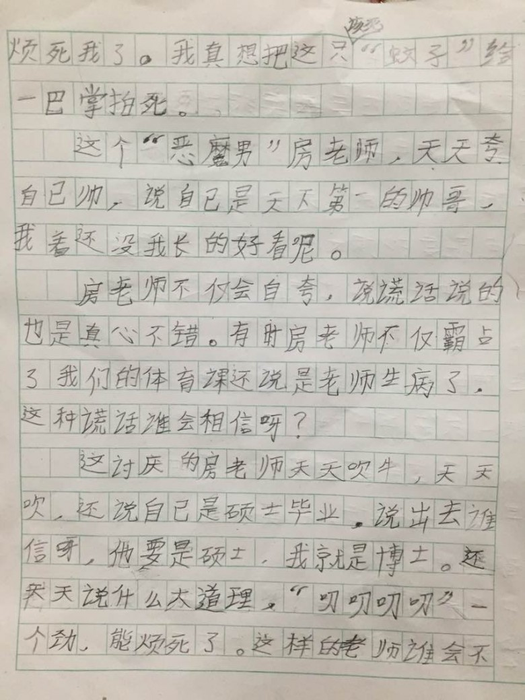 该死
烦死我了。我真想把这只“蚊子”给
一巴掌拍死。
这个“恶魔男”房老师,天天夸
自已帅,说自已是天下第一的帅哥,
我看还没我长的好看呢。
房老师不仅会自夸,说谎话说的
也是真心不错。有时房老师不仅霸占
了我们的体育课还说是老师生病了,
这种谎话谁会相信呀?
这讨厌的房老师天天吹牛,天天
吹,还说自已是硕士毕业,说出去谁
信呀,他要是硕士,我就是博士。还
天天说什么大道理,“叨叨叨叨”一
个劲,能烦死了。这样的老师谁会不